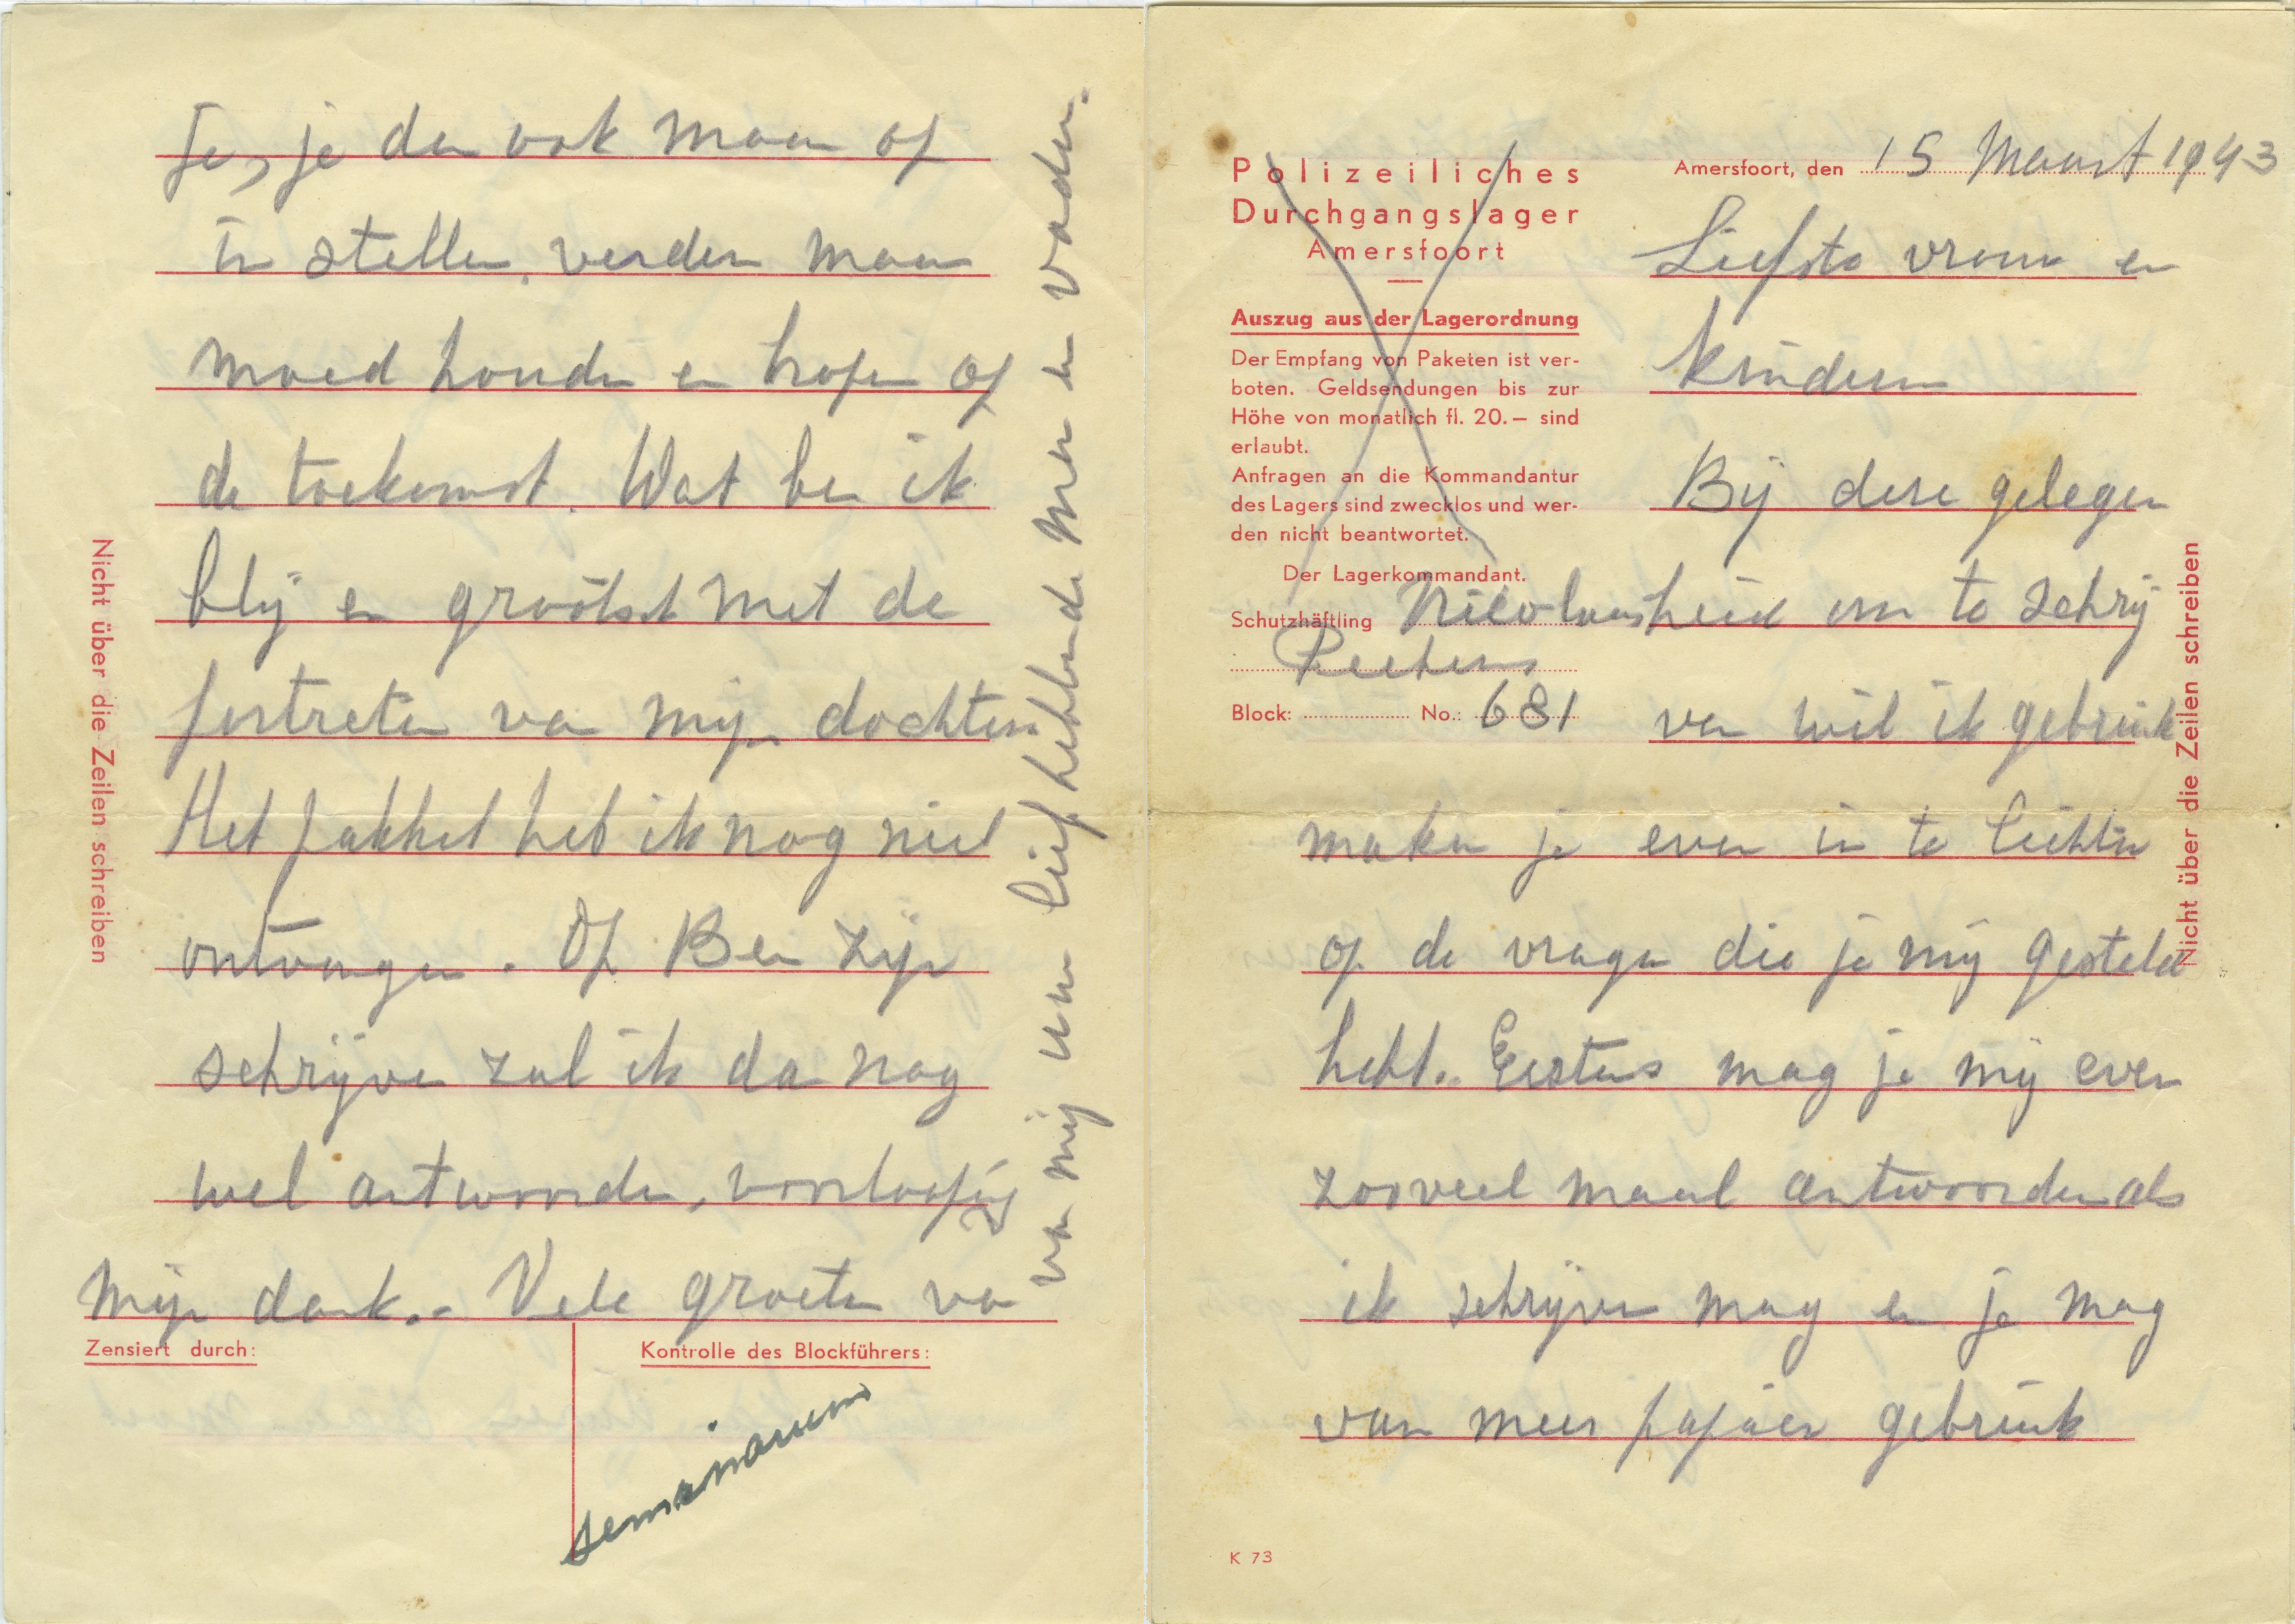 Je, je dan ook maar op
in stellen. verder maar
moed houden en hopen op
de toekomst. Wat ben ik
blij en grootsch met de
portretten van mijn dochters
Het pakket heb ik nog niet
ontvangen. Op Ben zijn
schrijven zal ik dan nog
wel antwoorden, voorloopig
mijn dank. - Vele groeten van
van mij uw liefhebbende Man en Vader.
Nicht über die Zeilen schreiben
Zensiert durch:
Kontrolle des Blockführers:
Polizeiliches
Durchgangslager
Amersfoort
Auszug aus der Lagerordnung
Der Empfang von Paketen ist ver-
boten. Geldsendungen bis zur
Höhe von monatlich fl. 20.— sind
erlaubt.
Anfragen an die Kommandantur
des Lagers sind zwecklos und wer-
den nicht beantwortet.
Der Lagerkommandant.
Schutzhäftling Nicolaas
Peeters
Block: No.: 681
Amersfoort, den 15 Maart 1943
Liefste vrouw en
kinderen
Bij deze gelegen
heid om te schrij
ven wil ik gebruik
maken je even in te lichten
op de vragen die je mij gesteld
hebt. Eerstens mag je mij even
zooveel maal antwoorden als
ik schrijven mag en je mag
van meer papier gebruik
Nicht über die Zeilen schreiben
K 73